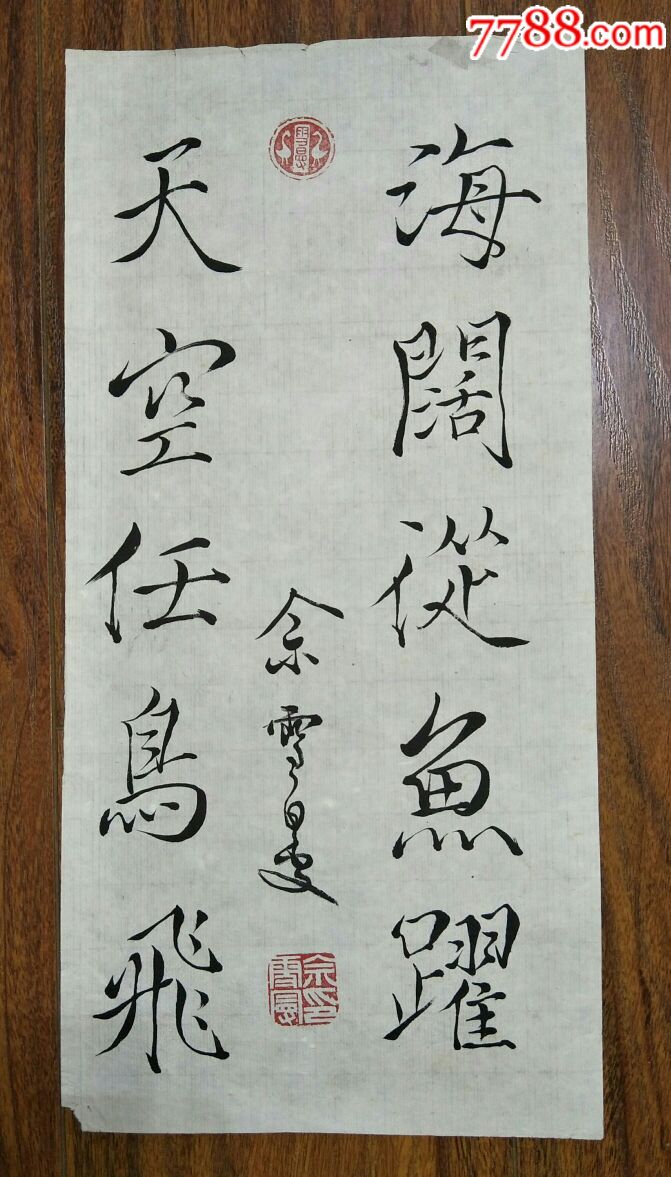 7788.com
海闊從魚躍
天空任鳥飛
佘雪曼
佘雪曼印